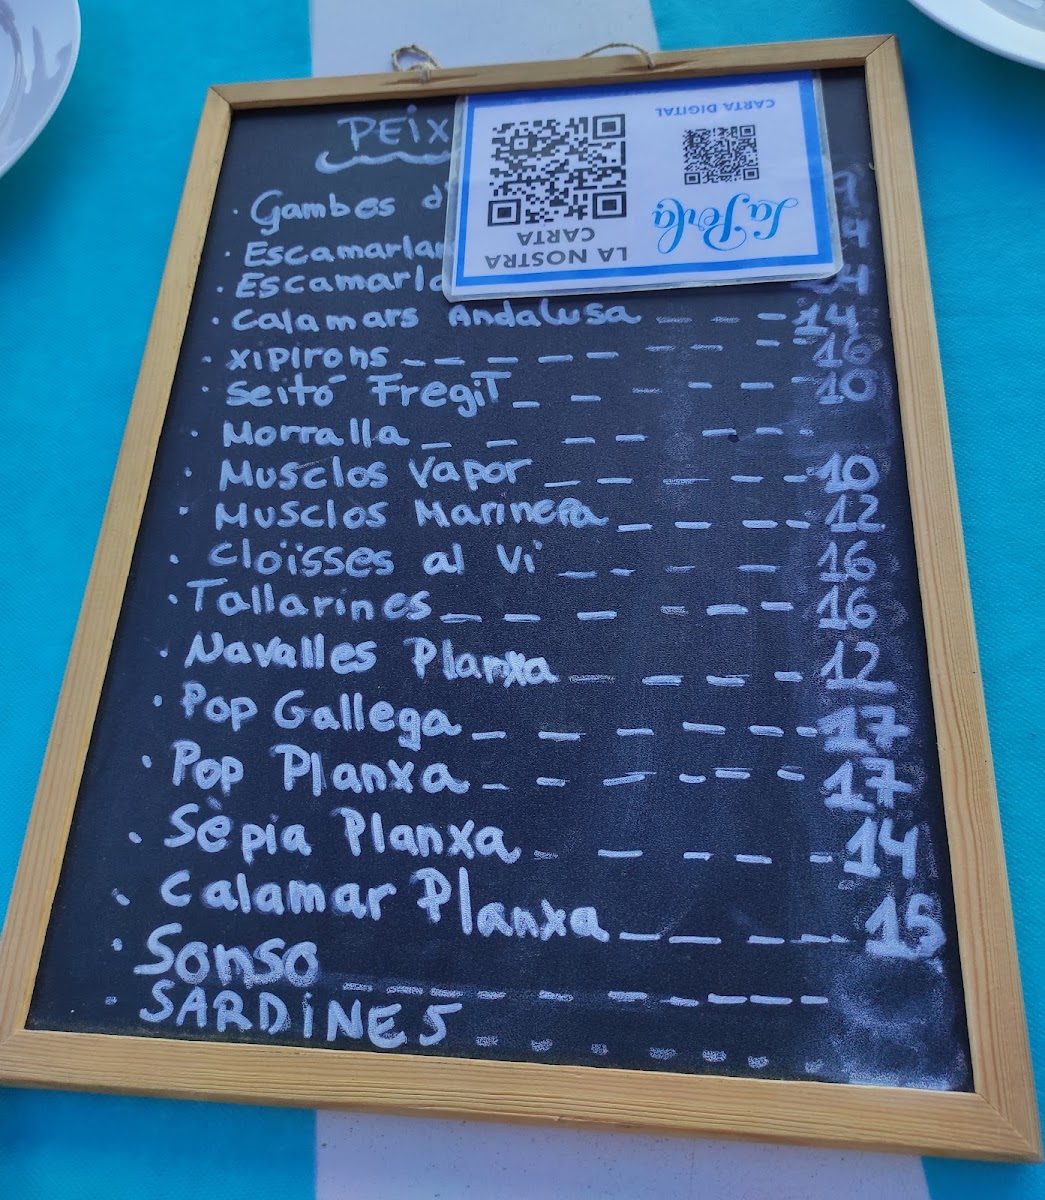 PEIX
CARTA DIGITAL
La Perla
LA NOSTRA
CARTA
· Gambes d'
· Escamarlan
· Escamarla
· Calamars Andalusa - - - 14
· Xipirons - - - - - - - - 16
· Seitó Fregit - - - - - - 10
· Morralla - - - - - - -
· Musclos Vapor - - - - - 10
· Musclos Marinera - - - - 12
· Cloïsses al Vi - - - - - 16
· Tallarines - - - - - - 16
· Navalles Planxa - - - - 12
· Pop Gallega - - - - - - 17
· Pop Planxa - - - - - - 17
· Sèpia Planxa - - - - - 14
· Calamar Planxa - - - - - 15
· Sonso - - - - - - - - - -
· SARDINES - - - - - -